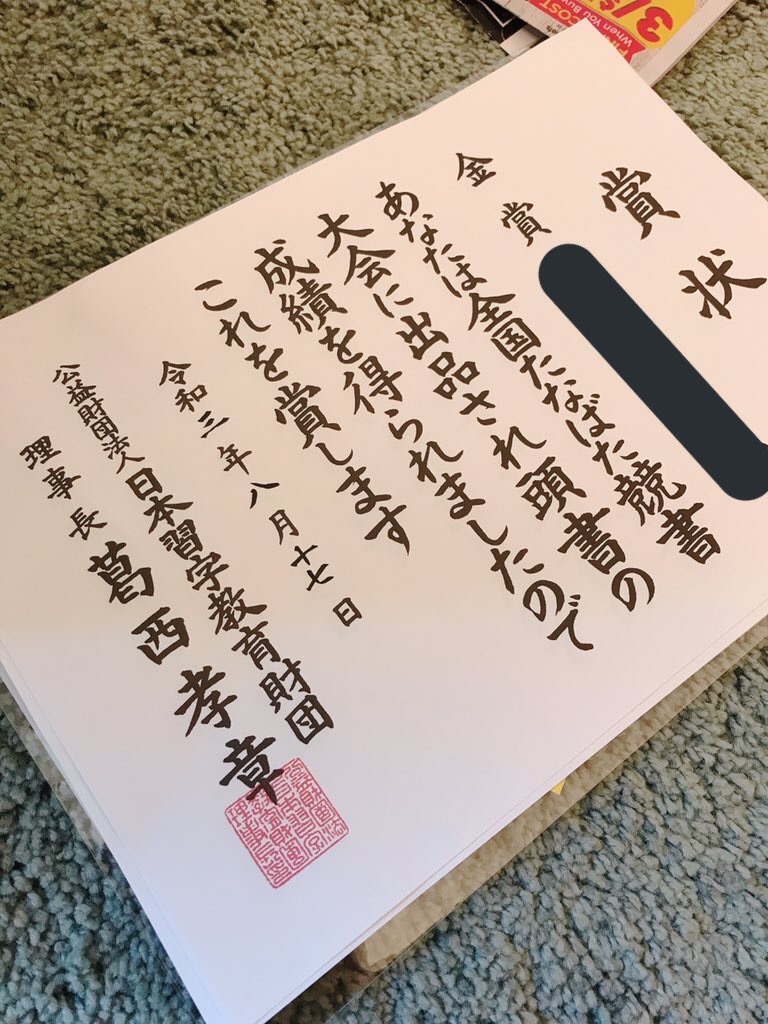 賞状
金賞
あなたは全国たなばた競書
大会に出品され頭書の
成績を得られましたので
これを賞します
令和三年八月十七日
公益財団法人日本習字教育財団
理事長 葛西孝章
COST
When You Buy
3/$